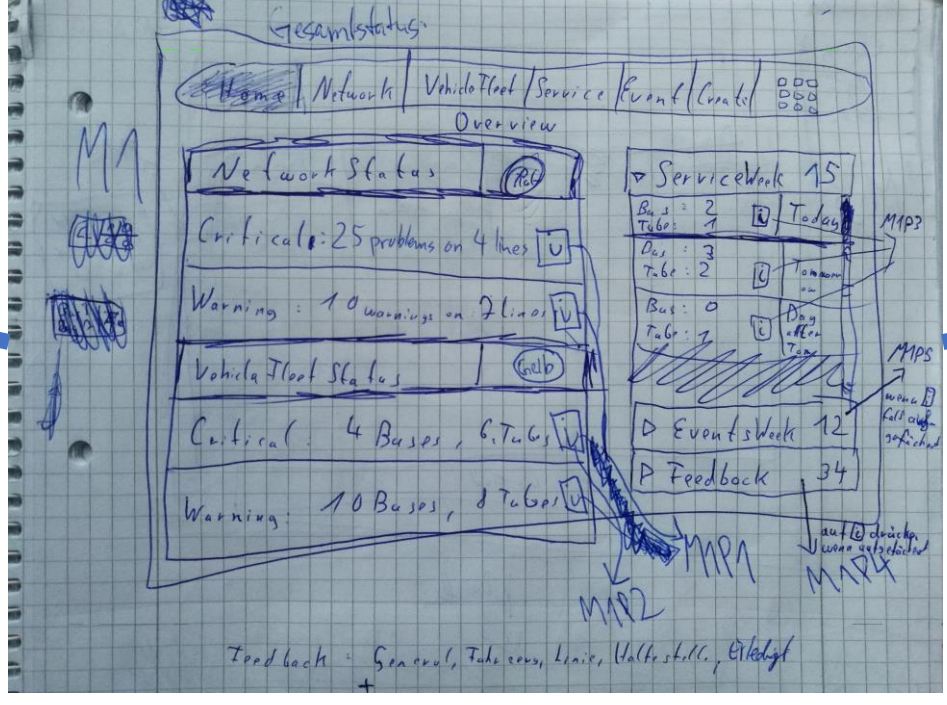 Gesamtstatus:
M1
Home Network VehicleFleet Service Event Create
Overview
Network Status Rot
Critical: 25 problems on 4 lines i
Warning: 10 warnings on 7 Lines i
Vehicle Fleet Status Gelb
Critical: 4 Buses, 6 Tubes i
Warning: 10 Buses, 8 Tubes i
ServiceWeek 15
Bus: 2
Tube: 1 i Today
Bus: 3
Tube: 2 i Tomorrow
Bus: 0
Tube: 1 i Day after Tom
EventsWeek 12
Feedback 34
M1P3
M1P5
wenn i
auf i drücken
wenn aufgefächert
M1P4
M1P1
M1P2
Feedback: General, Fahrzeug, Linie, Haltestelle, Erledigt